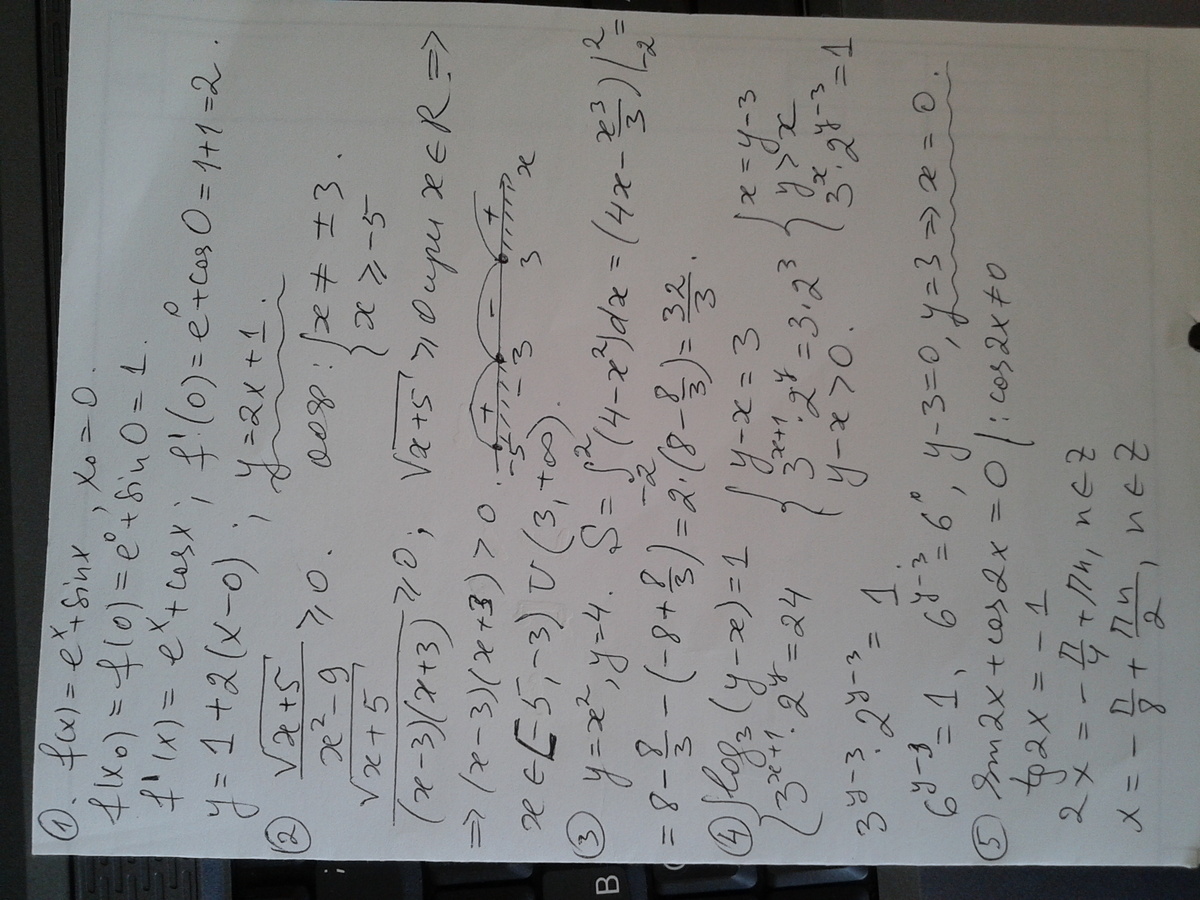 ① f(x) = e^x + sin x, x₀ = 0.
f(x₀) = f(0) = e⁰ + sin 0 = 1.
f'(x) = e^x + cos x; f'(0) = e⁰ + cos 0 = 1 + 1 = 2.
y = 1 + 2(x - 0); y = 2x + 1.
② √(x+5) / (x² - 9) ≥ 0. { x ≠ ±3. x ≥ -5
√(x+5) / ((x-3)(x+3)) ≥ 0; √(x+5) ≥ 0 при x ∈ R ⇒
⇒ (x-3)(x+3) > 0. -5 + -3 - 3 + x
x ∈ [-5, -3) ∪ (3, +∞).
③ y = x², y = 4. S = ∫₋₂² (4 - x²)dx = (4x - x³/3)|₋₂² =
= 8 - 8/3 - (-8 + 8/3) = 2·(8 - 8/3) = 32/3.
④ { log₃(y - x) = 1 { y - x = 3 { x = y - 3
3^(x+1) · 2^y = 24 3^(x+1) · 2^y = 3 · 2³ y > x
y - x > 0. 3^x · 2^(y-3) = 1
3^(y-3) · 2^(y-3) = 1
6^(y-3) = 1, 6^(y-3) = 6⁰, y - 3 = 0, y = 3 ⇒ x = 0.
⑤ sin 2x + cos 2x = 0 | : cos 2x ≠ 0
tg 2x = -1
2x = -π/4 + πn, n ∈ Z
x = -π/8 + πn/2, n ∈ Z
B